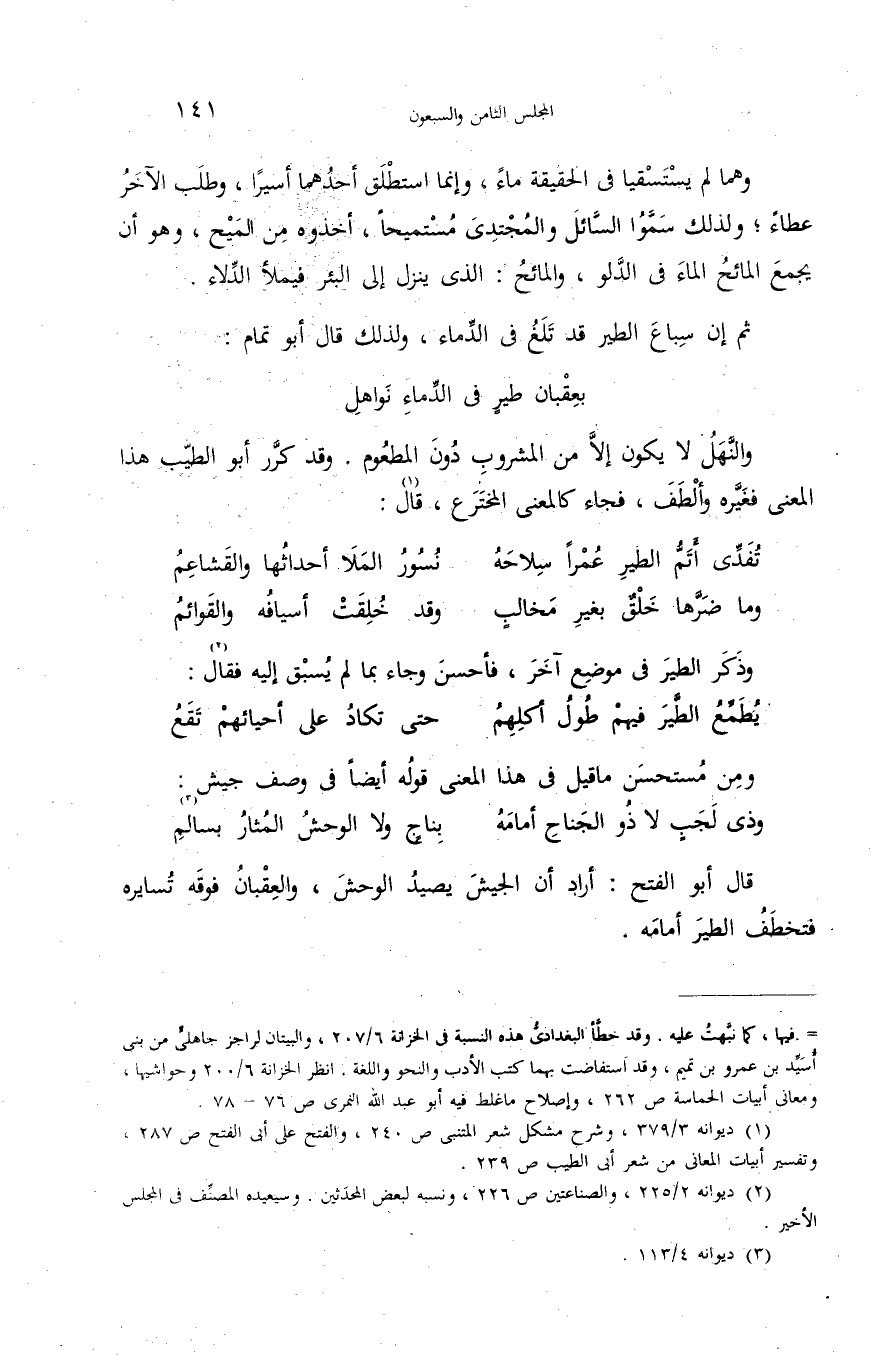 المجلس الثامن والسبعون ١٤١
وهما لم يسْتَسْقيا فى الحقيقة ماءً ، وإنما استطْلَق أحدُهما أسيرًا ، وطلَب الآخَرُ
عطاءً ؛ ولذلك سَمَّوُا السَّائلَ والمُجْتدِىَ مُسْتميحاً ، أخذوه مِن المَيْح ، وهو أن
يجمعَ المائحُ الماءَ فى الدَّلو ، والمائحُ : الذى ينزل إلى البئر فيملأ الدِّلاء .
ثم إن سِباعَ الطير قد تَلَغُ فى الدِّماء ، ولذلك قال أبو تمام :
بعِقْبان طيرٍ فى الدِّماءِ نَواهلِ
والنَّهَلُ لا يكون إلاَّ من المشروبِ دُونَ المطعُوم . وقد كرَّر أبو الطيّب هذا
المعنى فغَيَّره وألْطَفَ ، فجاء كالمعنى المخترَع ، قال(١) :
تُفَدِّى أَتَمُّ الطيرِ عُمْراً سِلاحَهُ نُسُورُ المَلَا أحداثُها والقَشاعِمُ
وما ضَرَّها خَلْقٌ بغيرِ مَخالبٍ وقد خُلِقَتْ أسيافُه والقَوائمُ
وذَكَر الطيرَ فى موضعٍ آخَرَ ، فأحسنَ وجاء بما لم يُسبْق إليه فقال(٢) :
يُطَمِّعُ الطَّيرَ فيهمْ طُولُ أكلِهِمُ حتى تكادُ على أحيائهمْ تَقَعُ
ومِن مُستحسَن ماقيل فى هذا المعنى قولُه أيضاً فى وصف جيش(٣) :
وذى لَجَبٍ لا ذُو الجَناحِ أمامَهُ بِناجٍ ولا الوحشُ المُثارُ بسالمِ
قال أبو الفتح : أراد أن الجيشَ يصيدُ الوحشَ ، والعِقْبانُ فوقَه تُسايره
فتخطَفُ الطيرَ أمامَه .
= فيها ، كما نبَّهتُ عليه . وقد خطَّأ البغدادىُّ هذه النسبة فى الخزانة ٢٠٧/٦ ، والبيتان لراجز جاهلىٍّ من بنى
أُسَيِّد بن عمرو بن تميم ، وقد استفاضت بهما كتب الأدب والنحو واللغة . انظر الخزانة ٢٠٠/٦ وحواشيها ،
ومعانى أبيات الحماسة ص ٢٦٢ ، وإصلاح ماغلط فيه أبو عبد الله النمرى ص ٧٦ – ٧٨ .
(١) ديوانه ٣٧٩/٣ ، وشرح مشكل شعر المتنبى ص ٢٤٠ ، والفتح على أبى الفتح ص ٢٨٧ ،
وتفسير أبيات المعانى من شعر أبى الطيب ص ٢٣٩ .
(٢) ديوانه ٢٢٥/٢ ، والصناعتين ص ٢٢٦ ، ونسبه لبعض المحدَثين . وسيعيده المصنِّف فى المجلس
الأخير .
(٣) ديوانه ١١٣/٤ .